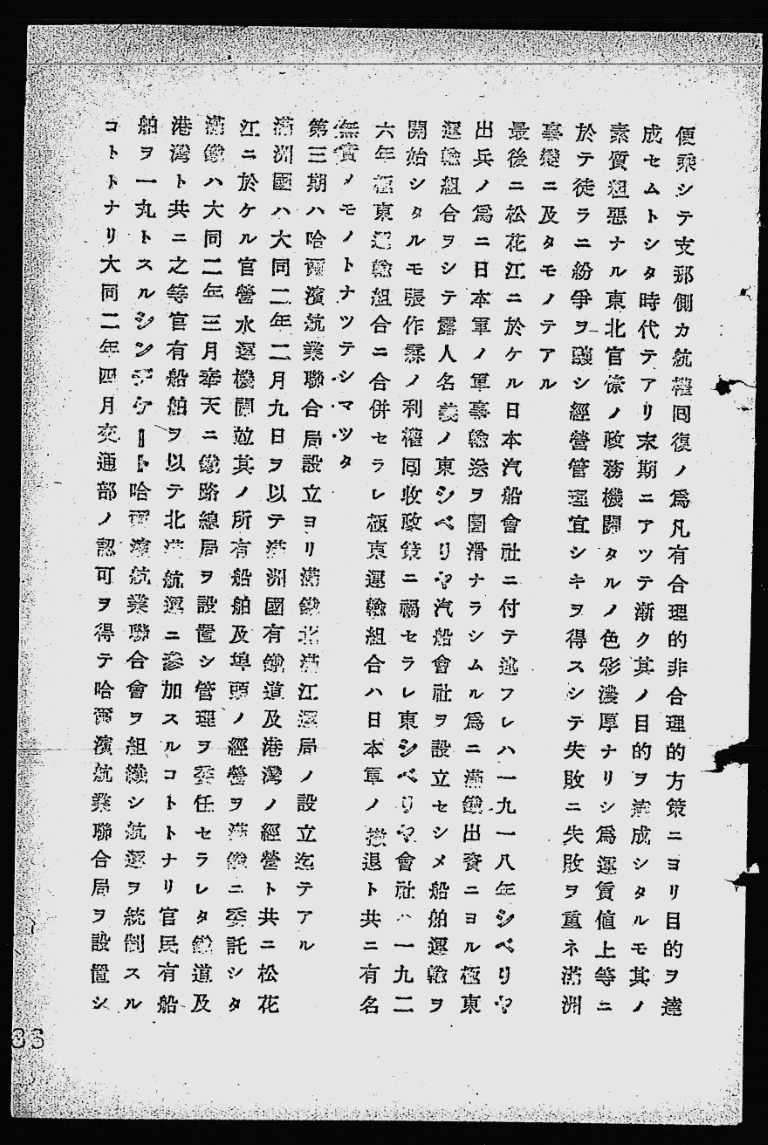 便乘シテ支那側カ航權囘復ノ爲凡有合理的非合理的方策ニヨリ目的ヲ達
成セムトシタ時代テアリ末期ニアツテ漸ク其ノ目的ヲ達成シタルモ其ノ
素質粗惡ナル東北官僚ノ政務機關タルノ色彩濃厚ナリシ爲運賃値上等ニ
於テ徒ラニ紛爭ヲ釀シ經營管理宜シキヲ得スシテ失敗ニ失敗ヲ重ネ滿洲
事變ニ及タモノテアル
最後ニ松花江ニ於ケル日本汽船會社ニ付テ述フレハ一九一八年シベリヤ
出兵ノ爲ニ日本軍ノ軍事輸送ヲ圓滑ナラシムル爲ニ滿鐵出資ニヨル極東
運輸組合ヲシテ露人名義ノ東シベリヤ汽船會社ヲ設立セシメ船舶運輸ヲ
開始シタルモ張作霖ノ利權囘收政策ニ禍セラレ東シベリヤ會社ハ一九二
六年極東運輸組合ニ合併セラレ極東運輸組合ハ日本軍ノ撤退ト共ニ有名
無實ノモノトナツテシマツタ
第三期ハ哈爾濱航業聯合局設立ヨリ滿鐵北滿江運局ノ設立迄テアル
滿洲國ハ大同二年二月九日ヲ以テ滿洲國有鐵道及港灣ノ經營ト共ニ松花
江ニ於ケル官營水運機關竝其ノ所有船舶及埠頭ノ經營ヲ滿鐵ニ委託シタ
滿鐵ハ大同二年三月奉天ニ鐵路總局ヲ設置シ管理ヲ委任セラレタ鐵道及
港灣ト共ニ之等官有船舶ヲ以テ北滿航運ニ參加スルコトトナリ官民有船
舶ヲ一丸トスルシンヂケート哈爾濱航業聯合會ヲ組織シ航運ヲ統制スル
コトトナリ大同二年四月交通部ノ認可ヲ得テ哈爾濱航業聯合局ヲ設置シ
36